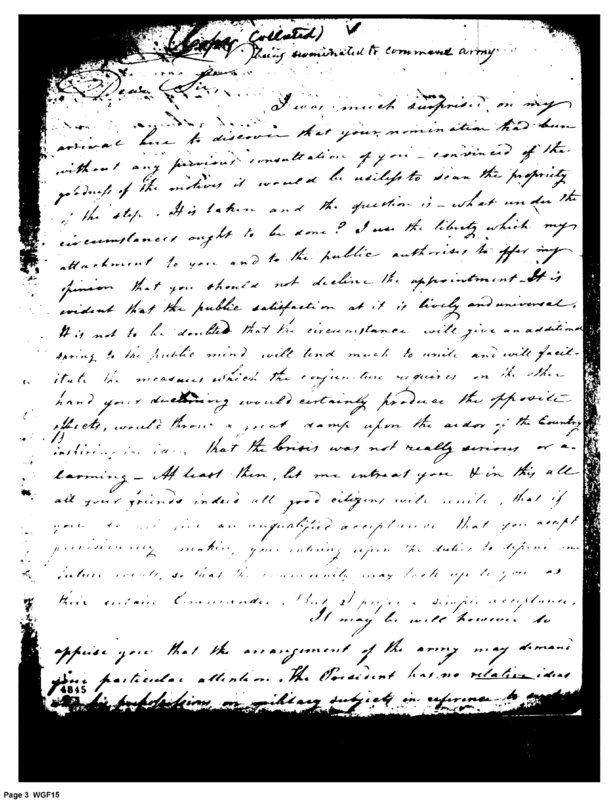 (Copy Collated) ✓
being nominated to command army.
Dear Sir,
I was much surprised, on my
arrival here to discover that your nomination had been
without any previous consultation of you – convinced of the
goodness of the motives it would be useless to scan the propriety
of the step. It is taken and the question is – what under the
circumstances ought to be done? I use the liberty which my
attachment to you and to the public authorises to offer my
opinion that you should not decline the appointment. It is
evident that the public satisfaction at it is lively and universal.
It is not to be doubted that the circumstance will give an additional
spring to the public mind will tend much to unite and will facil-
itate the measures which the conjuncture requires on the other
hand your declining would certainly produce the opposite
effects, would throw a great damp upon the ardor of the Country
inspiring the idea that the Crisis was not really serious or a-
larming – At least then, let me entreat you & in this all
all your friends indeed all good citizens will unite, that if
you do not give an unqualified acceptance that you accept
provisionally making your entering upon the duties to depend on
future events, so that the community may look up to you as
their certain Commander. But I prefer a simple acceptance.
It may be well however to
apprise you that the arrangement of the army may demand
your particular attention. The President has no relative ideas
& his prepossessions on military subjects in reference to such
4845
Page 3 WGF15